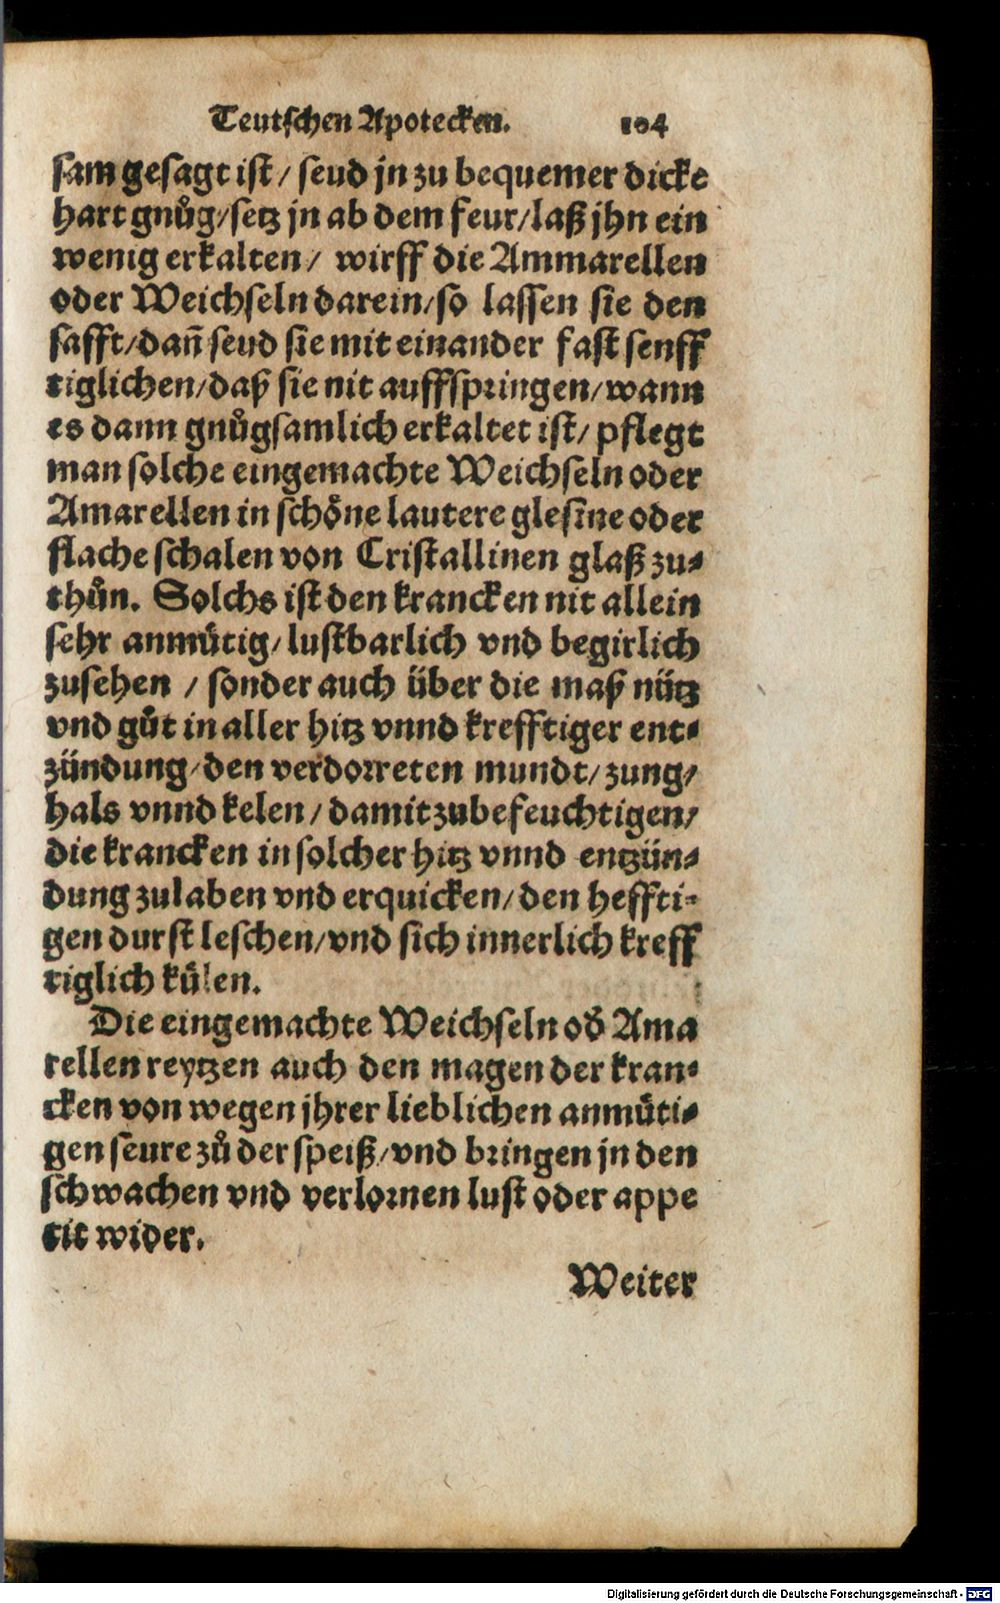 Teutschen Apotecken. 104
sam gesagt ist / seud jn zu bequemer dicke
hart gnůg / setz jn ab dem feur / laß jhn ein
wenig erkalten / wirff die Ammarellen
oder Weichseln darein / so lassen sie den
safft / dañ seud sie mit einander fast senff
tiglichen / daß sie nit auffspringen / wann
es dann gnůgsamlich erkaltet ist / pflegt
man solche eingemachte Weichseln oder
Amarellen in schöne lautere glesine oder
flache schalen von Cristallinen glaß zu-
thůn. Solchs ist den krancken nit allein
sehr anmütig / lustbarlich vnd begirlich
zusehen / sonder auch über die maß nütz
vnd gůt in aller hitz vnnd krefftiger ent-
zündung / den verdorreten mundt / zung /
hals vnnd kelen / damit zubefeuchtigen /
die krancken in solcher hitz vnnd entzün-
dung zulaben vnd erquicken / den heffti-
gen durst leschen / vnd sich innerlich kreff
tiglich külen.
Die eingemachte Weichseln oď Ama
rellen reytzen auch den magen der kran-
cken von wegen jhrer lieblichen anmüti-
gen seure zů der speiß / vnd bringen jn den
schwachen vnd verlornen lust oder appe
tit wider.
Weiter
Digitalisierung gefördert durch die Deutsche Forschungsgemeinschaft - DFG